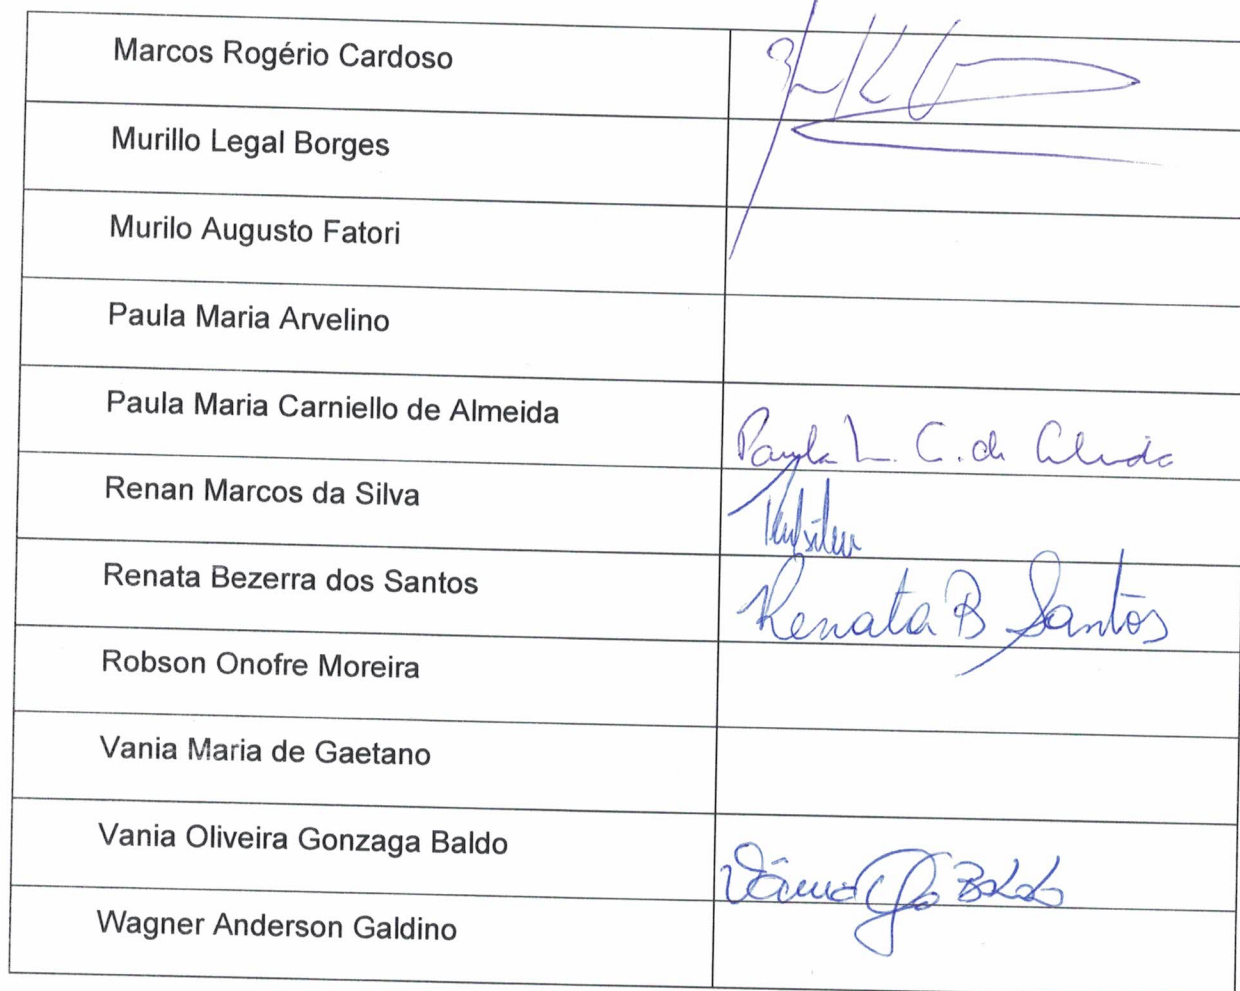 Marcos Rogério Cardoso
Murillo Legal Borges
Murilo Augusto Fatori
Paula Maria Arvelino
Paula Maria Carniello de Almeida
Renan Marcos da Silva
Renata Bezerra dos Santos
Renata B Santos
Robson Onofre Moreira
Vania Maria de Gaetano
Vania Oliveira Gonzaga Baldo
Wagner Anderson Galdino